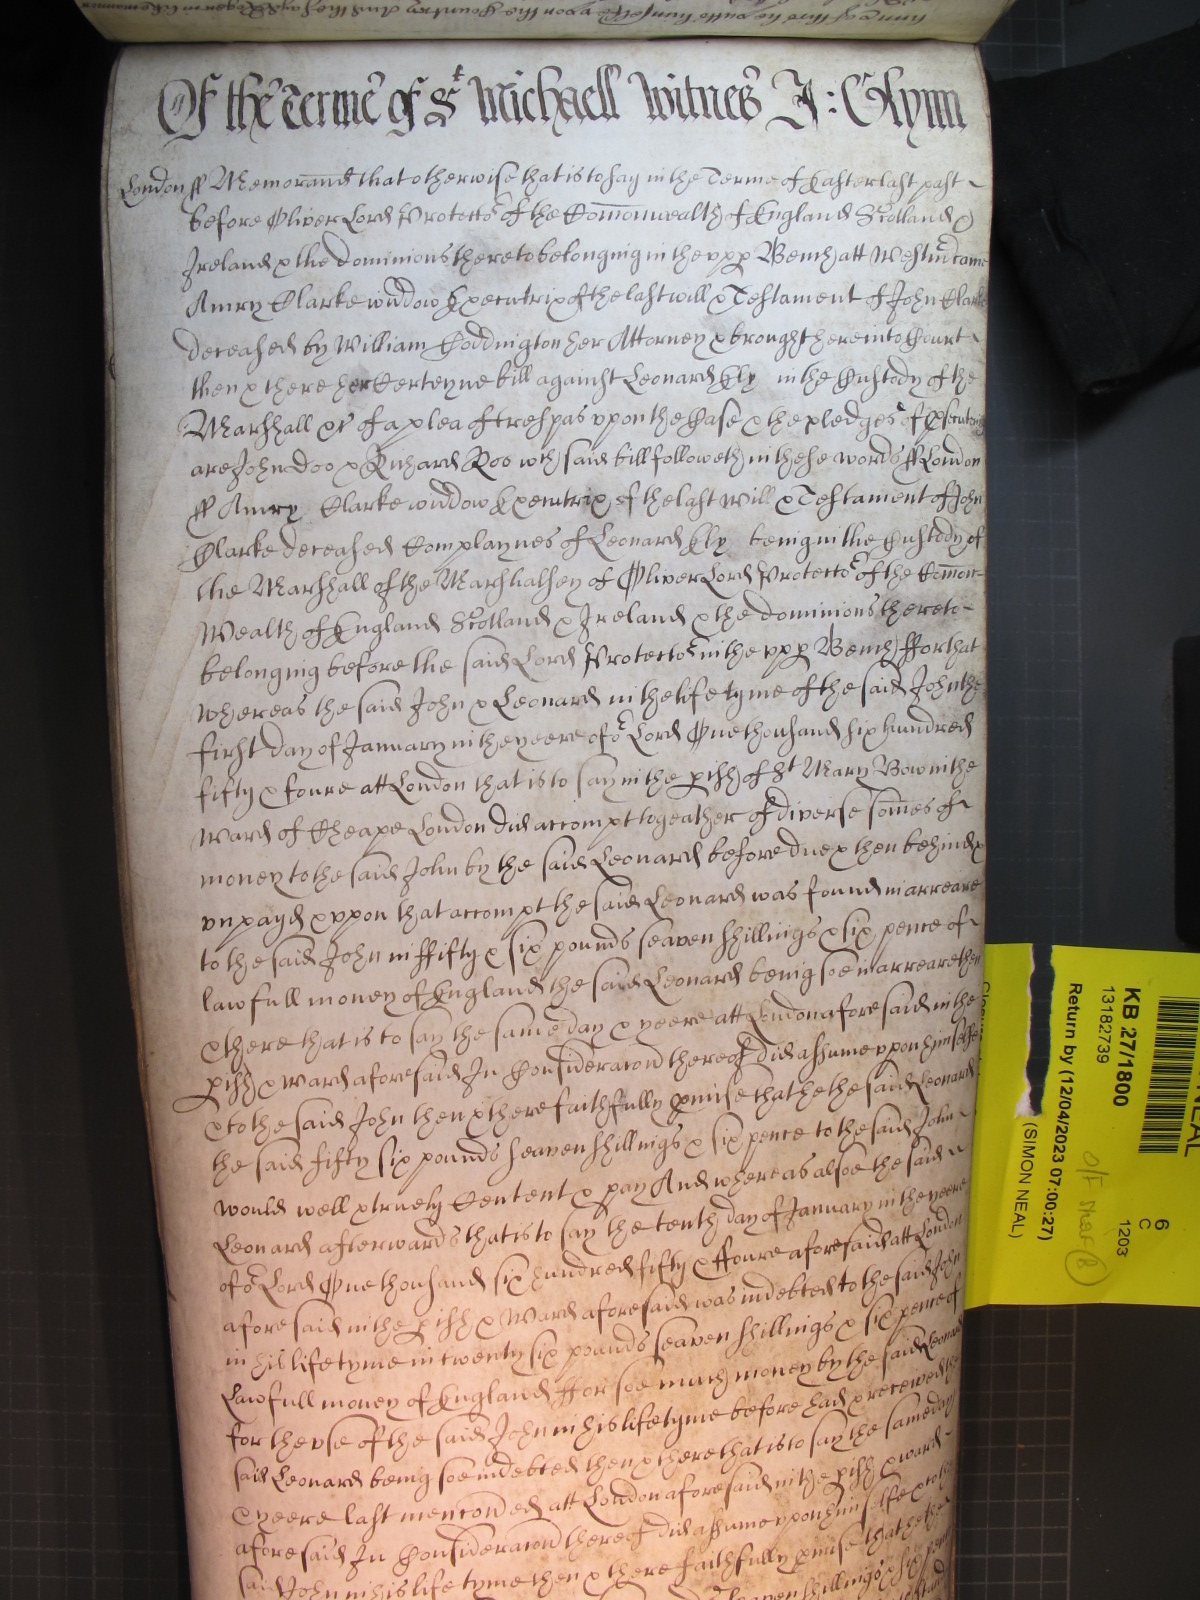 Of the Terme of St Michaell Witnes J: Glynn
London ss Memorand that otherwise that is to say in the Terme of Easter last past
before Oliver Lord Protector of the Comonwealth of England Scotland &
Ireland & the dominions thereto belonging in the upp Bench att Westm came
Amry Clarke widdow Executrix of the last will & Testament of John Clarke
deceased by William Coddington her Attorney & brought here into Court
then & there her certeyne bill against Leonard Ely in the Custody of the
Marshall &c of a plea of trespas uppon the Case & the pledges of
are John doo & Richard Roo wch said bill followeth in these words ss London
ss Amry Clarke widdow Executrix of the last Will & Testament of John
Clarke deceased Complaynes of Leonard Ely being in the Custody of
the Marshall of the Marshalsey of Oliver Lord Protector of the Comon
Wealth of England Scotland & Ireland & the dominions thereto
belonging before the said Lord Protector in the upp Bench ffor that
whereas the said John & Leonard in the life tyme of the said John the
first day of January in the yeere of or Lord One thousand six hundred
fifty & foure att London that is to say in the pish of St Mary Bow in the
Ward of Cheape London did accompt togeather of diverse somes of
money to the said John by the said Leonard before due & then behind &
unpayd & uppon that accompt the said Leonard was found in arreare
to the said John in ffifty & six pounds seaven shillings & six pence of
lawfull money of England the said Leonard being soe in arreare then
& there that is to say the same day & yeere att London aforesaid in the
pish & ward aforesaid In Consideracon thereof did assume uppon himselfe
& to the said John then & there faithfully pmise that he the said Leonard
the said fifty six pounds seaven shillings & six pence to the said John
would well & truely Content & pay And whereas alsoe the said
Leonard afterwards that is to say the tenth day of January in the yeere
of or Lord One thousand six hundred fifty & ffoure aforesaid att London
aforesaid in the pish & Ward aforesaid was indebted to the said John
in his life tyme in twenty six pounds seaven shillings & six pence of
Lawfull money of England ffor soe much money by the said Leonard
for the use of the said John in his life tyme before had & received the
said Leonard being soe indebted then & there that is to say the same day
& yeere last menconed att London aforesaid in the pish & ward
aforesaid In Consideracon thereof did assume uppon himselfe & to the
said John in his life tyme then & there faithfully pmise that he the
seaven shillings & six pence
KB 27/1800
13182739
Return by (12/04/2023 07:00:27)
(SIMON NEAL)
6
C
1203
NEAL